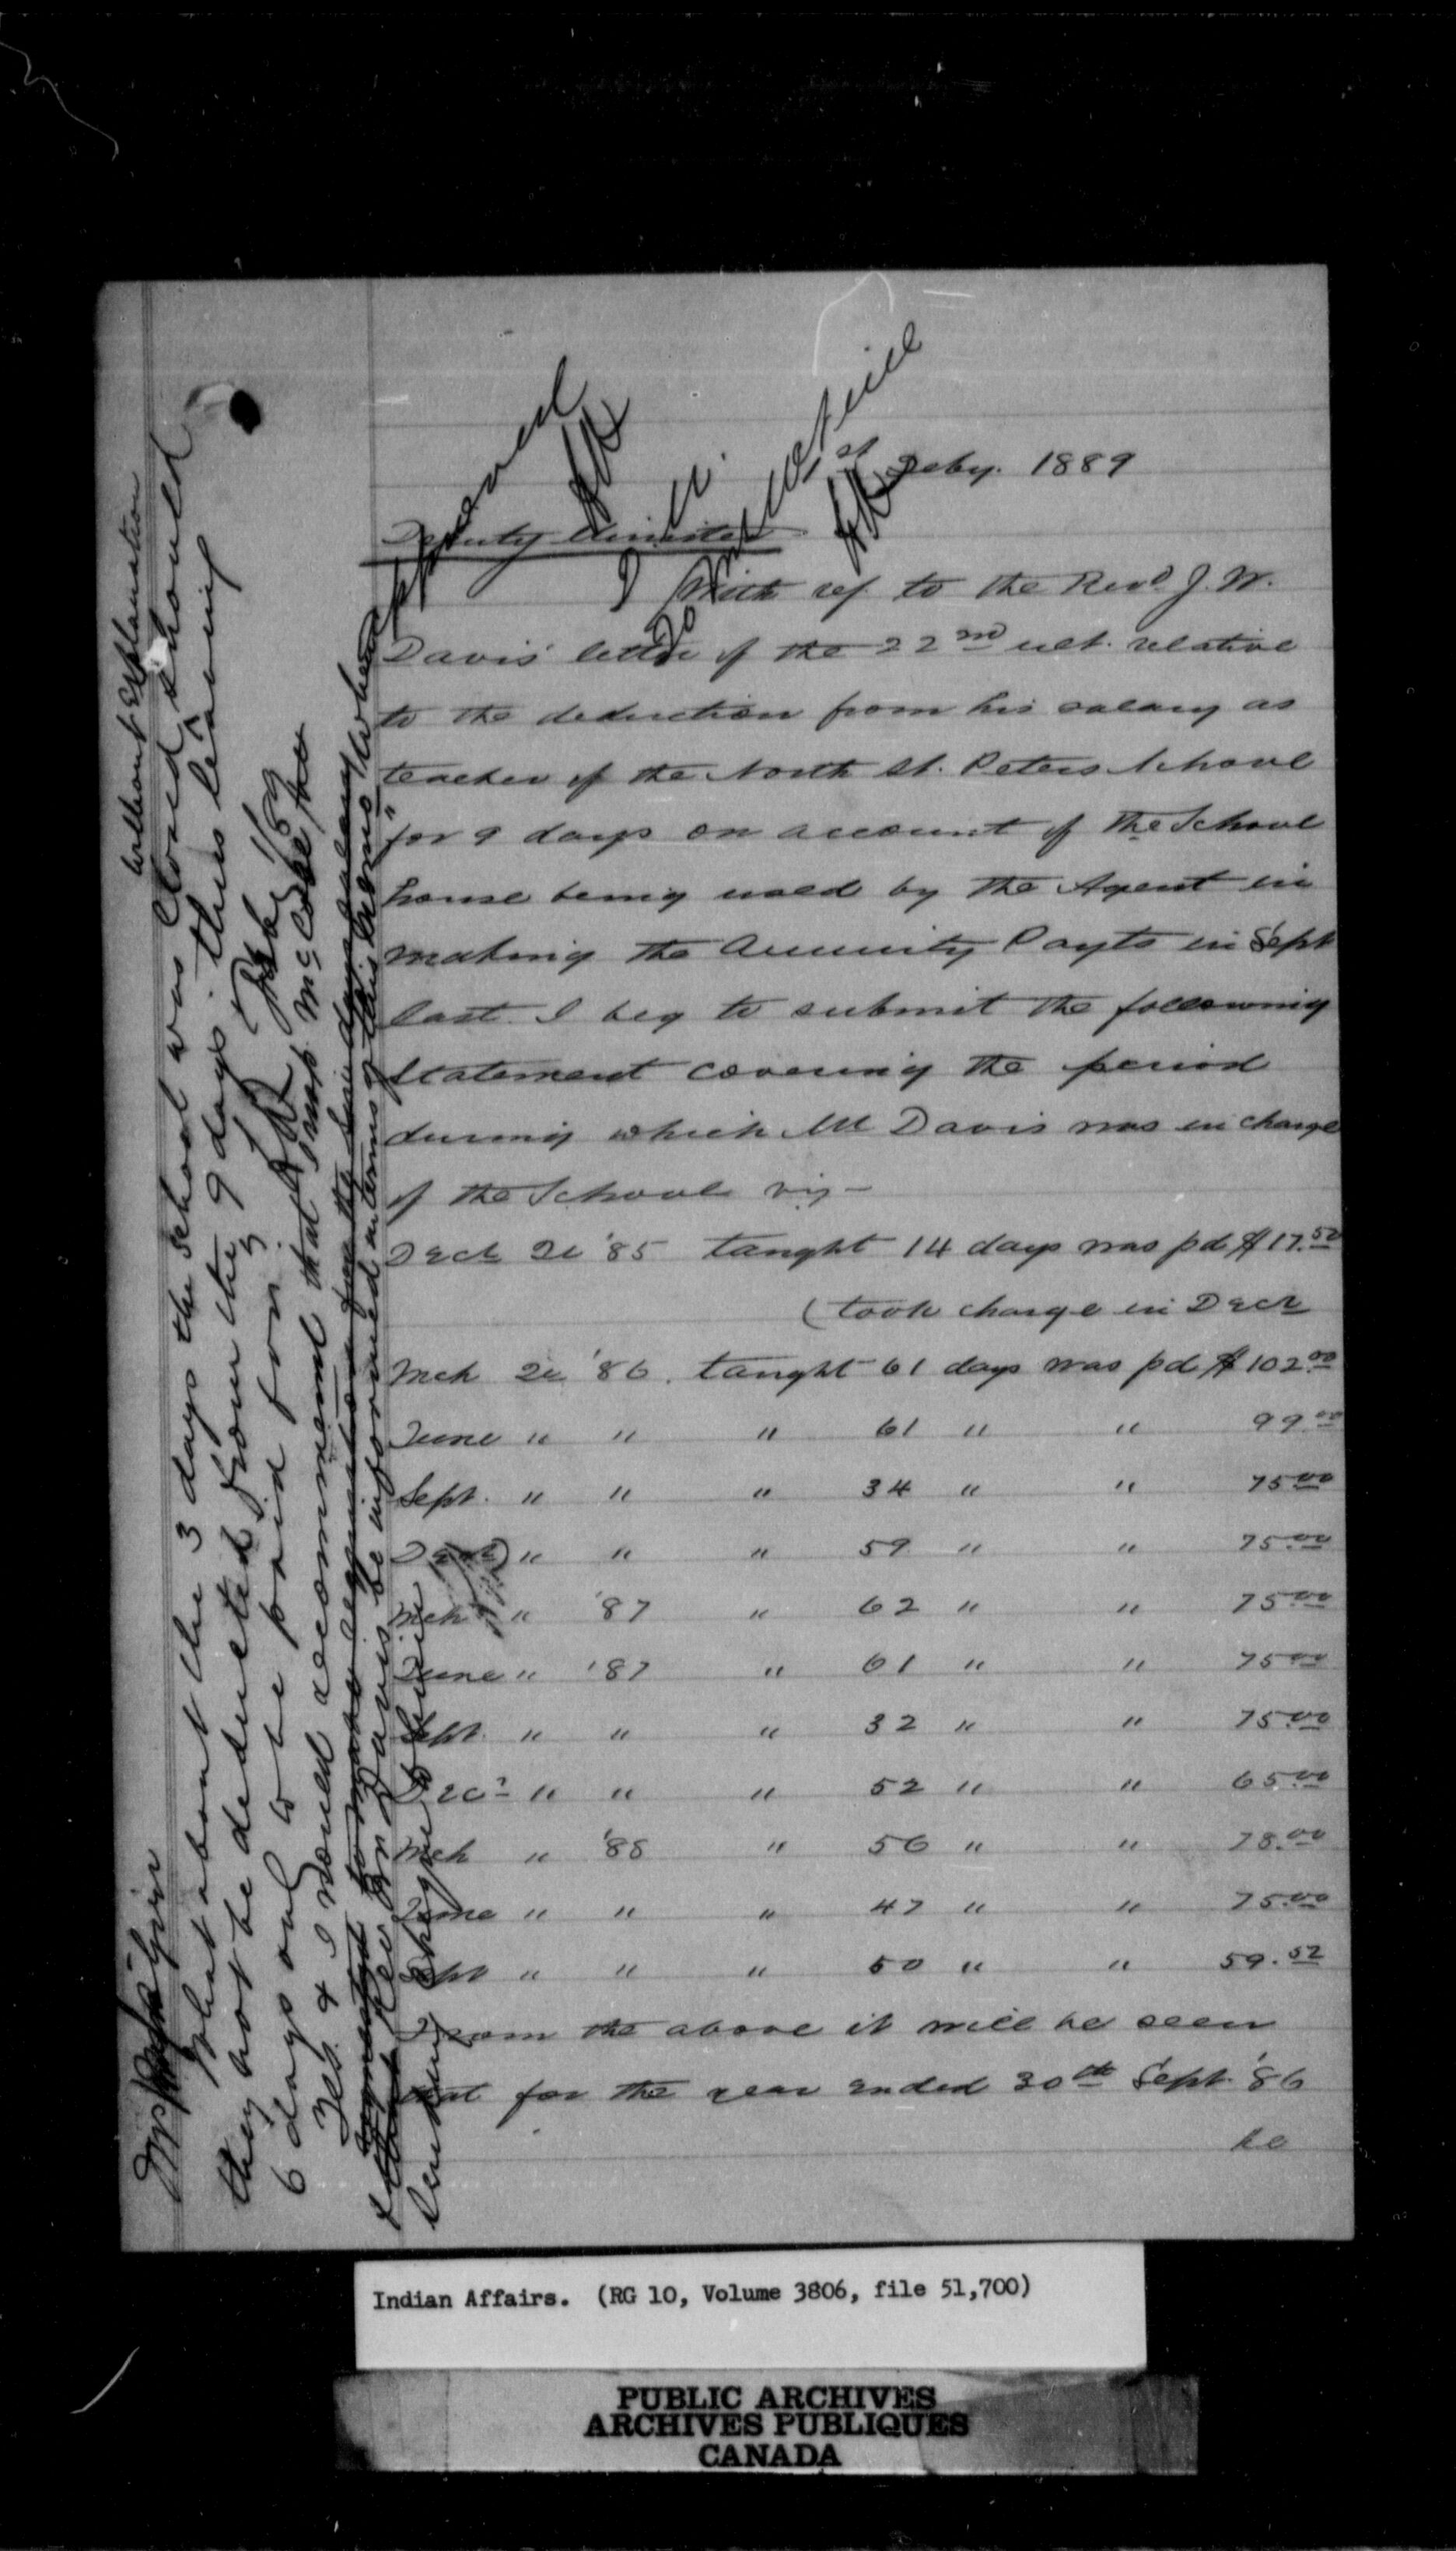 Approved
Feby. 1889
Deputy Minister
With ref to the Revd. J. W.
Davis' letter of the 22nd ult. relative
to the deduction from his salary as
teacher of the North St. Peters School
for 9 days on account of the School
house being used by the Agent in
making the Annuity Payts in Sept
last I beg to submit the following
Statement covering the period
during which Mr Davis was in charge
of the School viz -
Decr Qr '85 taught 14 days was pd $17.50
(took charge in Decr
Mch Qr '86. taught 61 days was pd $102.00
June " " " 61 " " 99.00
Sept. " " " 34 " " 75.00
Decr " " " 59 " " 75.00
Mch " '87 " 62 " " 75.00
June " '87 " 61 " " 75.00
Sept. " " " 32 " " 75.00
Decr " " " 52 " " 65.00
Mch " '88 " 56 " " 75.00
June " " " 47 " " 75.00
Sept " " " 50 " " 59.52
From the above it will be seen
that for the year ended 30th Sept. '86
he
without Explanation
What about the 3 days the school was closed, should
they not be deducted from the 9 days thus leaving
6 days only to be paid for.
Feby 1/89
Yes & I would recommend that
be informed in terms of this memo
Indian Affairs. (RG 10, Volume 3806, file 51,700)
PUBLIC ARCHIVES
ARCHIVES PUBLIQUES
CANADA